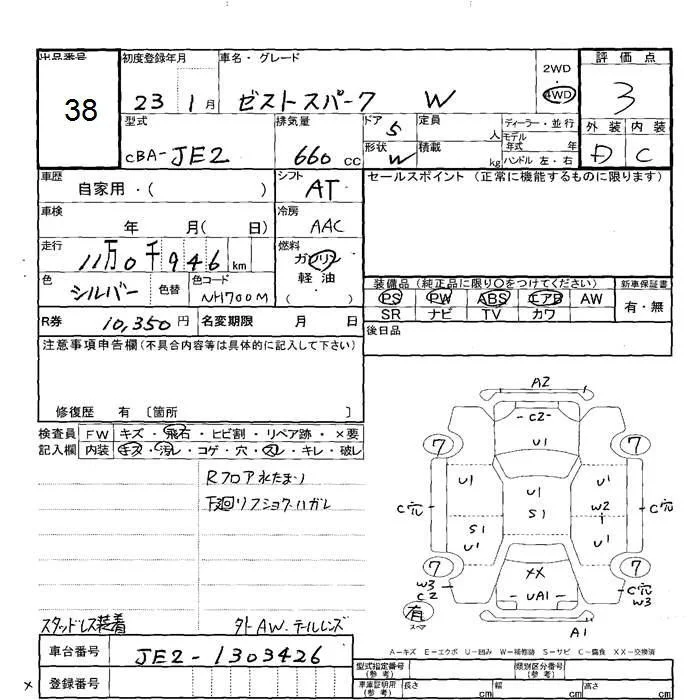 出品番号 初度登録年月 車名・グレード 2WD・4WD 評価点
38 23 1月 ゼストスパーク W 3
型式 排気量 ドア 5 定員 人 ディーラー・並行 外装 内装
CBA-JE2 660 CC 形状 W 積載 kg モデル年式 年 ハンドル 左・右 D C
車歴 自家用・( ) シフト AT セールスポイント (正常に機能するものに限ります)
車検 年 月( 日) 冷房 AAC
走行 11万0千946 km 燃料 ガソリン 軽油 ( )
色 シルバー 色替 色コード NH700M
装備品 (純正品に限り○をつけてください) 新車保証書
PS PW ABS エアB AW 有・無
SR ナビ TV カワ
R券 10,350円 名変期限 月 日 後日品
注意事項申告欄(不具合内容等は具体的に記入して下さい)
修復歴 有 〔箇所 〕
検査員 FW キズ・飛石・ヒビ割・リペア跡・×要
記入欄 内装 キズ・汚レ・コゲ・穴・スレ・キレ・破レ
Rフロア水たまり
下廻リフショク・ハガレ
A2
C2
U1
7 7
U1 U1
C穴 S1 W2 C穴
S1
U1 U1
7 7
XX
W3 C穴
C2 UA1 W3
有
スペア
A1
スタッドレス装着 外AW.テールレンズ
A−キズ E−エクボ U−凹み W−補修跡 S−サビ C−腐食 XX−交換済
車台番号 JE2-1303426
型式指定番号(参考) 類別区分番号(参考)
× 登録番号 車庫証明用(参考) 長さ cm 幅 cm 高さ cm